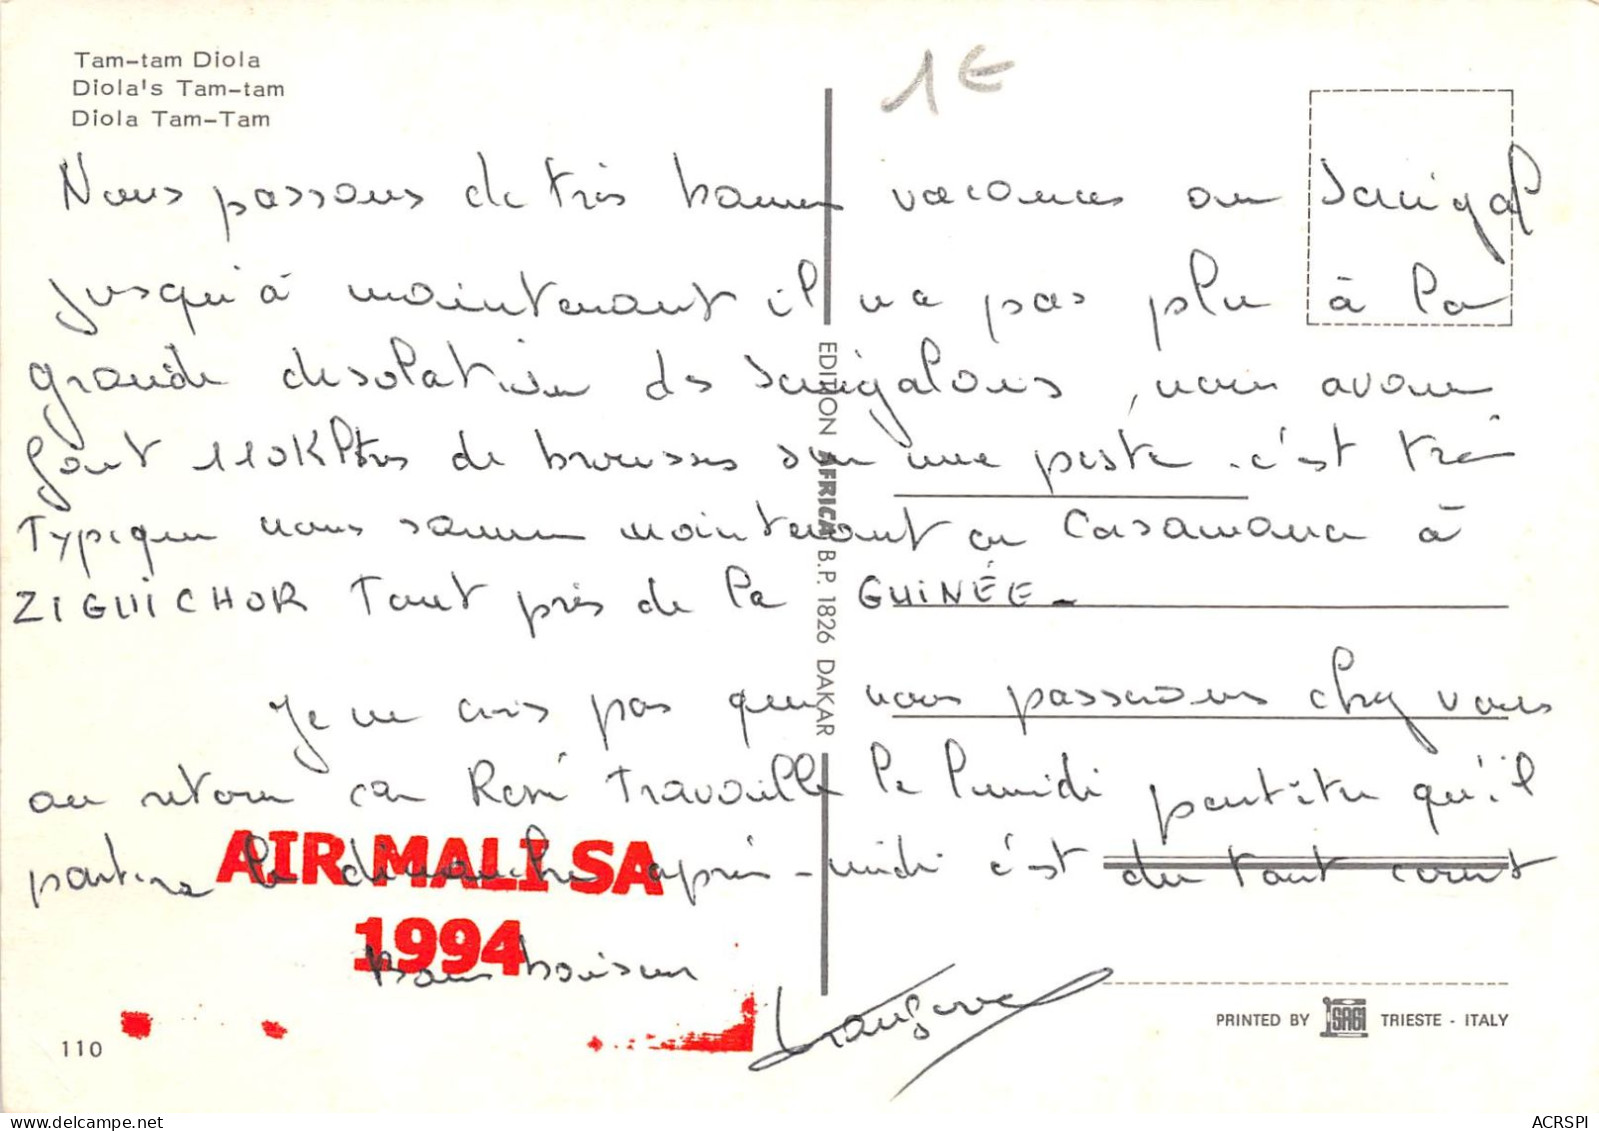 Tam-tam Diola
Diola's Tam-tam
Diola Tam-Tam
1€
Nous passons de très bonnes vacances au Sénégal
jusqu'à maintenant il n'a pas plu à la
grande désolation des Sénégalais, nous avons
fait 110 Kltres de brousses sur une piste. c'est très
Typique nous sommes maintenant en Casamance à
ZIGUICHOR Tout près de la GUINÉE -
Je ne crois pas que nous passerons chez vous
au retour car René Travaille le lundi peut-être qu'il
partira le dimanche après-midi c'est du Tout court
Bons baisers
AIR MALI SA
1994
EDITION AFRICA B.P. 1826 DAKAR
110
PRINTED BY SAGI TRIESTE - ITALY
ACRSPI